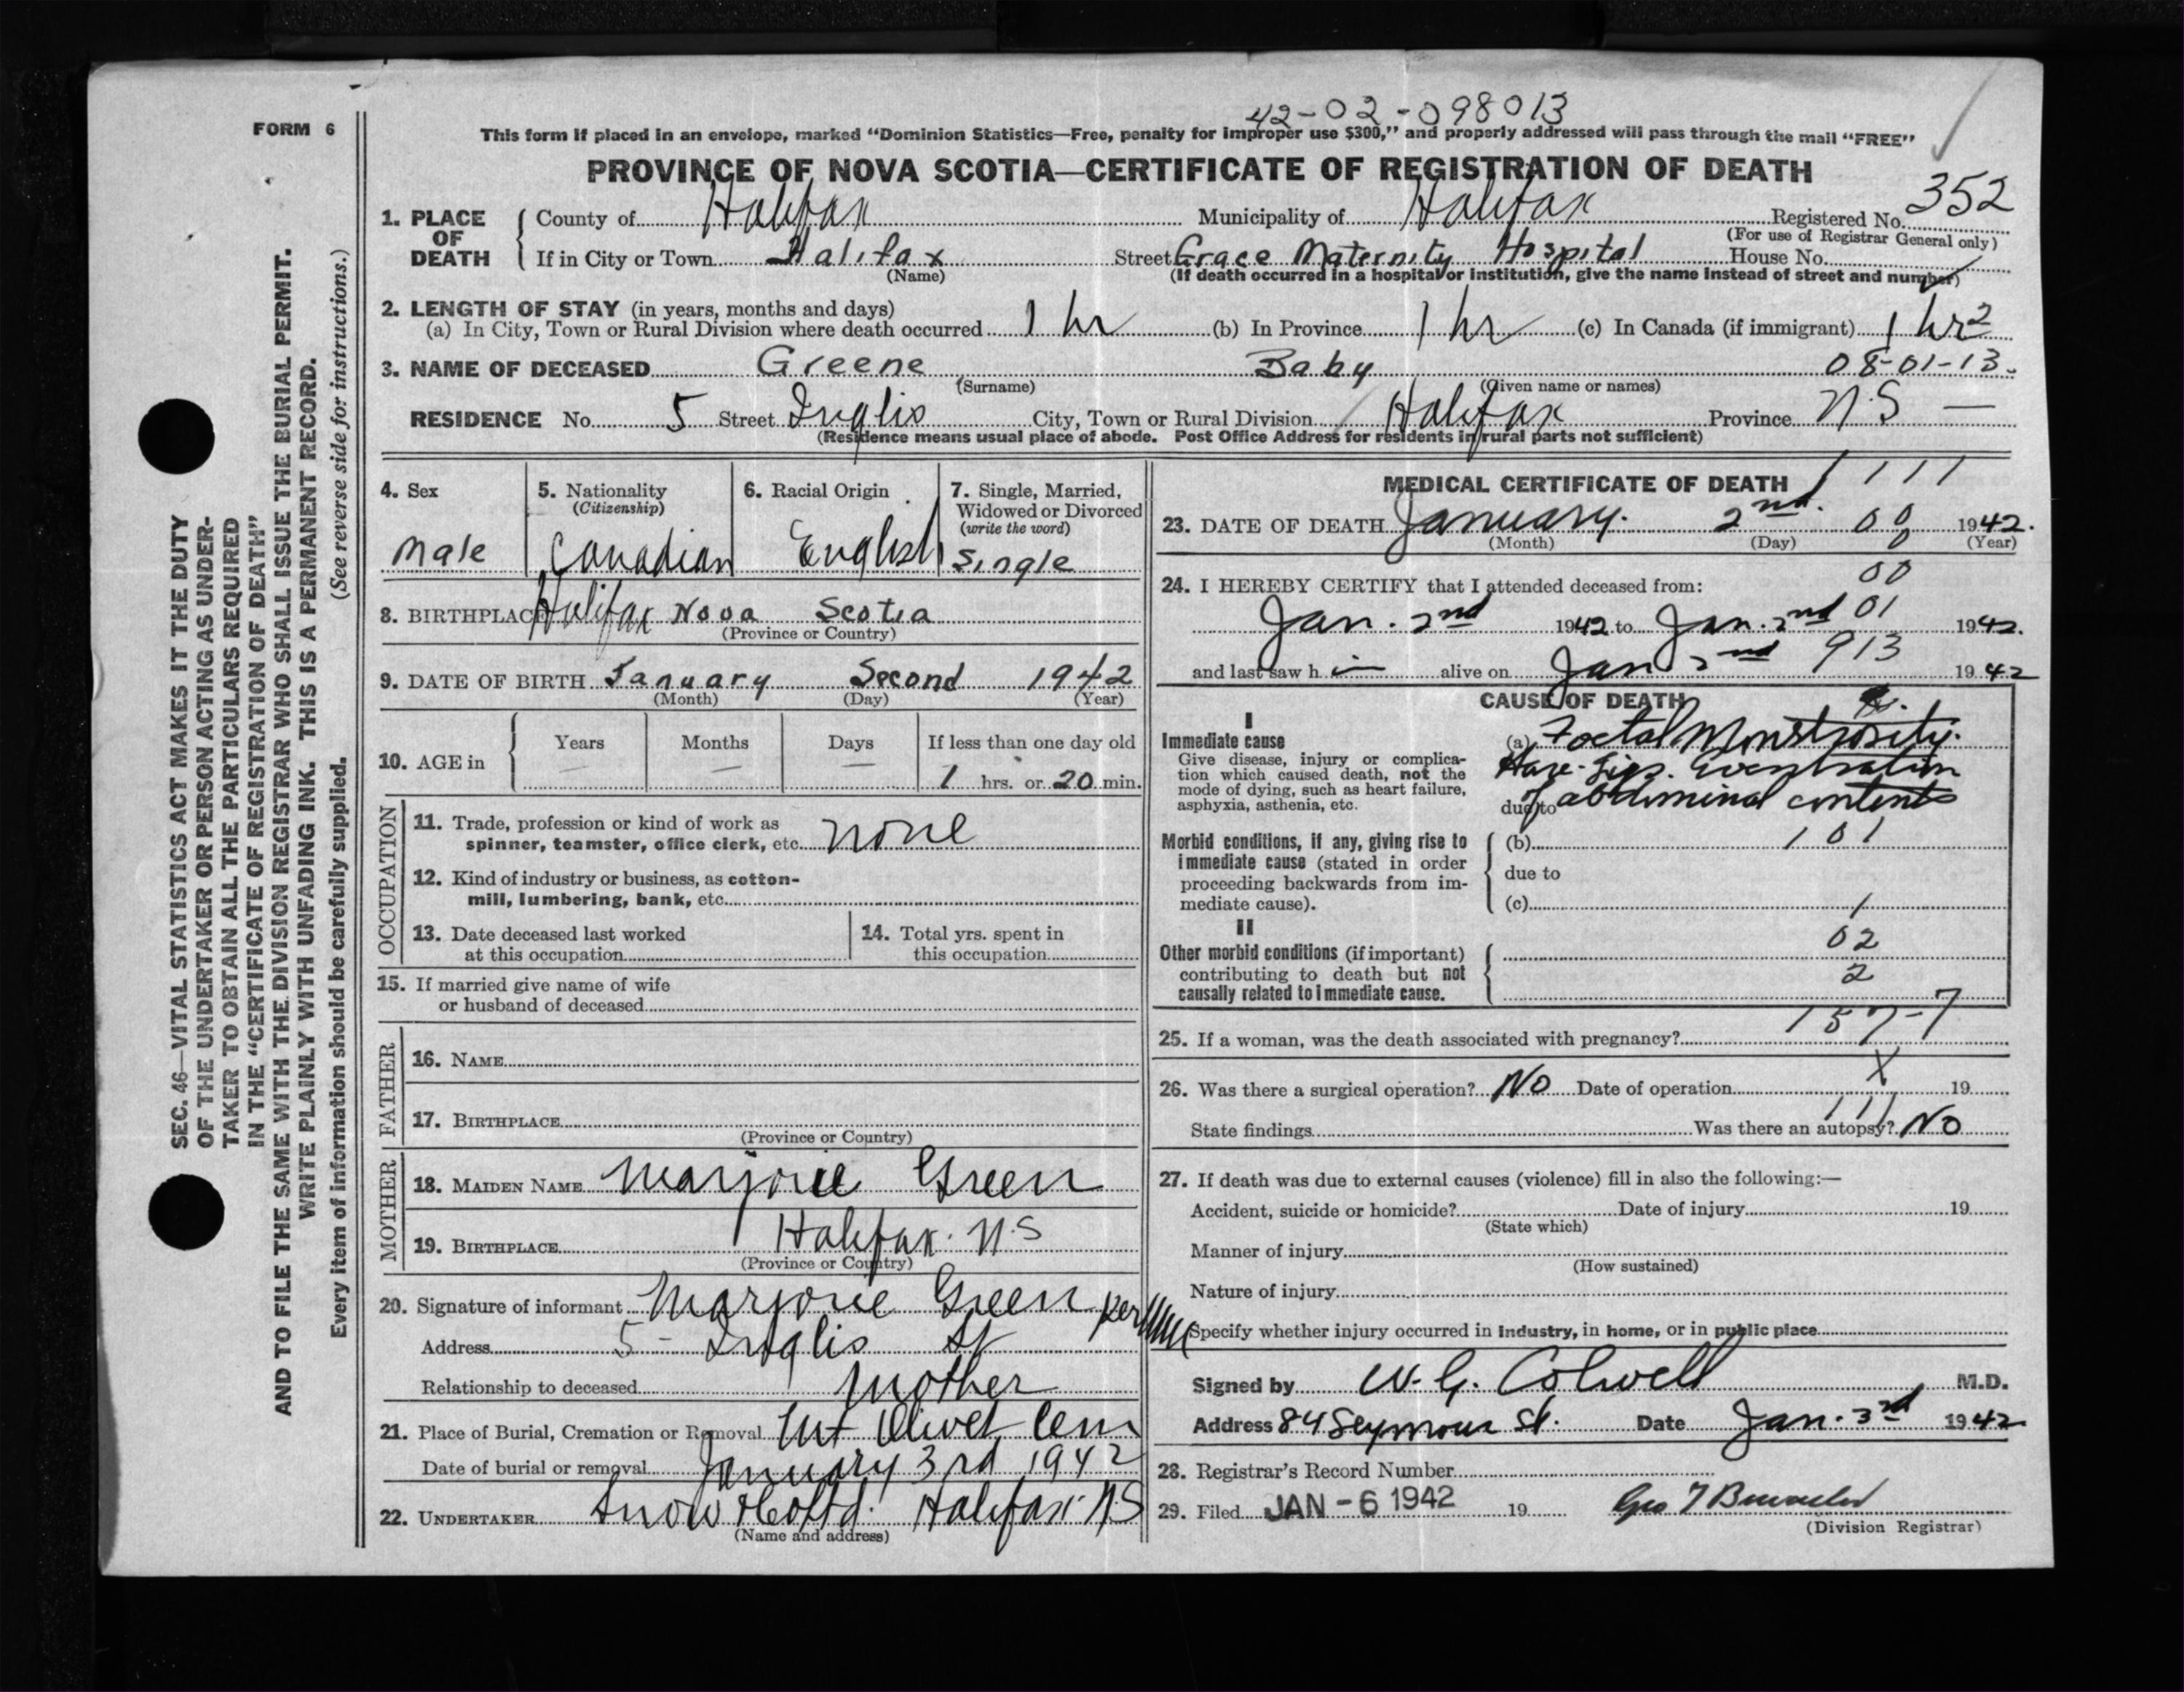 42-02-098013
FORM 6
This form if placed in an envelope, marked "Dominion Statistics—Free, penalty for improper use $300," and properly addressed will pass through the mail "FREE"
PROVINCE OF NOVA SCOTIA—CERTIFICATE OF REGISTRATION OF DEATH
1. PLACE OF DEATH County of Halifax Municipality of Halifax Registered No. 352
(For use of Registrar General only)
If in City or Town Halifax Street Grace Maternity Hospital House No.
(Name) (If death occurred in a hospital or institution, give the name instead of street and number)
2. LENGTH OF STAY (in years, months and days)
(a) In City, Town or Rural Division where death occurred 1 hr (b) In Province 1 hr (c) In Canada (if immigrant) 1 hr 2
3. NAME OF DECEASED Greene Baby 08-01-13.
(Surname) (Given name or names)
RESIDENCE No. 5 Street Inglis City, Town or Rural Division Halifax Province N.S —
(Residence means usual place of abode. Post Office Address for residents in rural parts not sufficient)
SEC. 46—VITAL STATISTICS ACT MAKES IT THE DUTY
OF THE UNDERTAKER OR PERSON ACTING AS UNDER-
TAKER TO OBTAIN ALL THE PARTICULARS REQUIRED
IN THE "CERTIFICATE OF REGISTRATION OF DEATH"
AND TO FILE THE SAME WITH THE DIVISION REGISTRAR WHO SHALL ISSUE THE BURIAL PERMIT.
WRITE PLAINLY WITH UNFADING INK. THIS IS A PERMANENT RECORD.
Every item of information should be carefully supplied. (See reverse side for instructions.)
4. Sex 5. Nationality 6. Racial Origin 7. Single, Married,
(Citizenship) Widowed or Divorced
(write the word)
Male Canadian English Single
8. BIRTHPLACE Halifax Nova Scotia
(Province or Country)
9. DATE OF BIRTH January Second 1942
(Month) (Day) (Year)
10. AGE in Years Months Days If less than one day old
— — — 1 hrs. or 20 min.
OCCUPATION
11. Trade, profession or kind of work as
spinner, teamster, office clerk, etc. none
12. Kind of industry or business, as cotton-
mill, lumbering, bank, etc.
13. Date deceased last worked 14. Total yrs. spent in
at this occupation this occupation
15. If married give name of wife
or husband of deceased
FATHER
16. NAME
17. BIRTHPLACE
(Province or Country)
MOTHER
18. MAIDEN NAME Marjorie Green
19. BIRTHPLACE Halifax. N.S
(Province or Country)
20. Signature of informant Marjorie Green per
Address 5 - Inglis St
Relationship to deceased Mother
21. Place of Burial, Cremation or Removal Mt Olivet Cem
Date of burial or removal January 3rd 1942
22. UNDERTAKER Snow & Co Ltd. Halifax N.S
(Name and address)
MEDICAL CERTIFICATE OF DEATH 1 1 1 1
23. DATE OF DEATH January. 2nd. 00 1942.
(Month) (Day) 0 (Year)
24. I HEREBY CERTIFY that I attended deceased from: 00
Jan. 2nd 1942 to Jan. 2nd 01 1942.
and last saw h im alive on Jan. 2nd 913 1942
CAUSE OF DEATH
I
Immediate cause
Give disease, injury or complica-
tion which caused death, not the
mode of dying, such as heart failure,
asphyxia, asthenia, etc.
(a) Foetal Monstrosity.
Hare-Lips. Eventration
due to of abdominal contents
Morbid conditions, if any, giving rise to
immediate cause (stated in order
proceeding backwards from im-
mediate cause).
(b) 101
due to
(c) 1
II
Other morbid conditions (if important)
contributing to death but not
causally related to immediate cause.
02
2
25. If a woman, was the death associated with pregnancy? 157-7
26. Was there a surgical operation? No Date of operation X 19
State findings 111 Was there an autopsy? No
27. If death was due to external causes (violence) fill in also the following:—
Accident, suicide or homicide? Date of injury 19
(State which)
Manner of injury
(How sustained)
Nature of injury
Specify whether injury occurred in industry, in home, or in public place
Signed by W. G. Colwell M.D.
Address 84 Seymour St. Date Jan. 3rd 1942
28. Registrar's Record Number
29. Filed JAN - 6 1942 19
(Division Registrar)